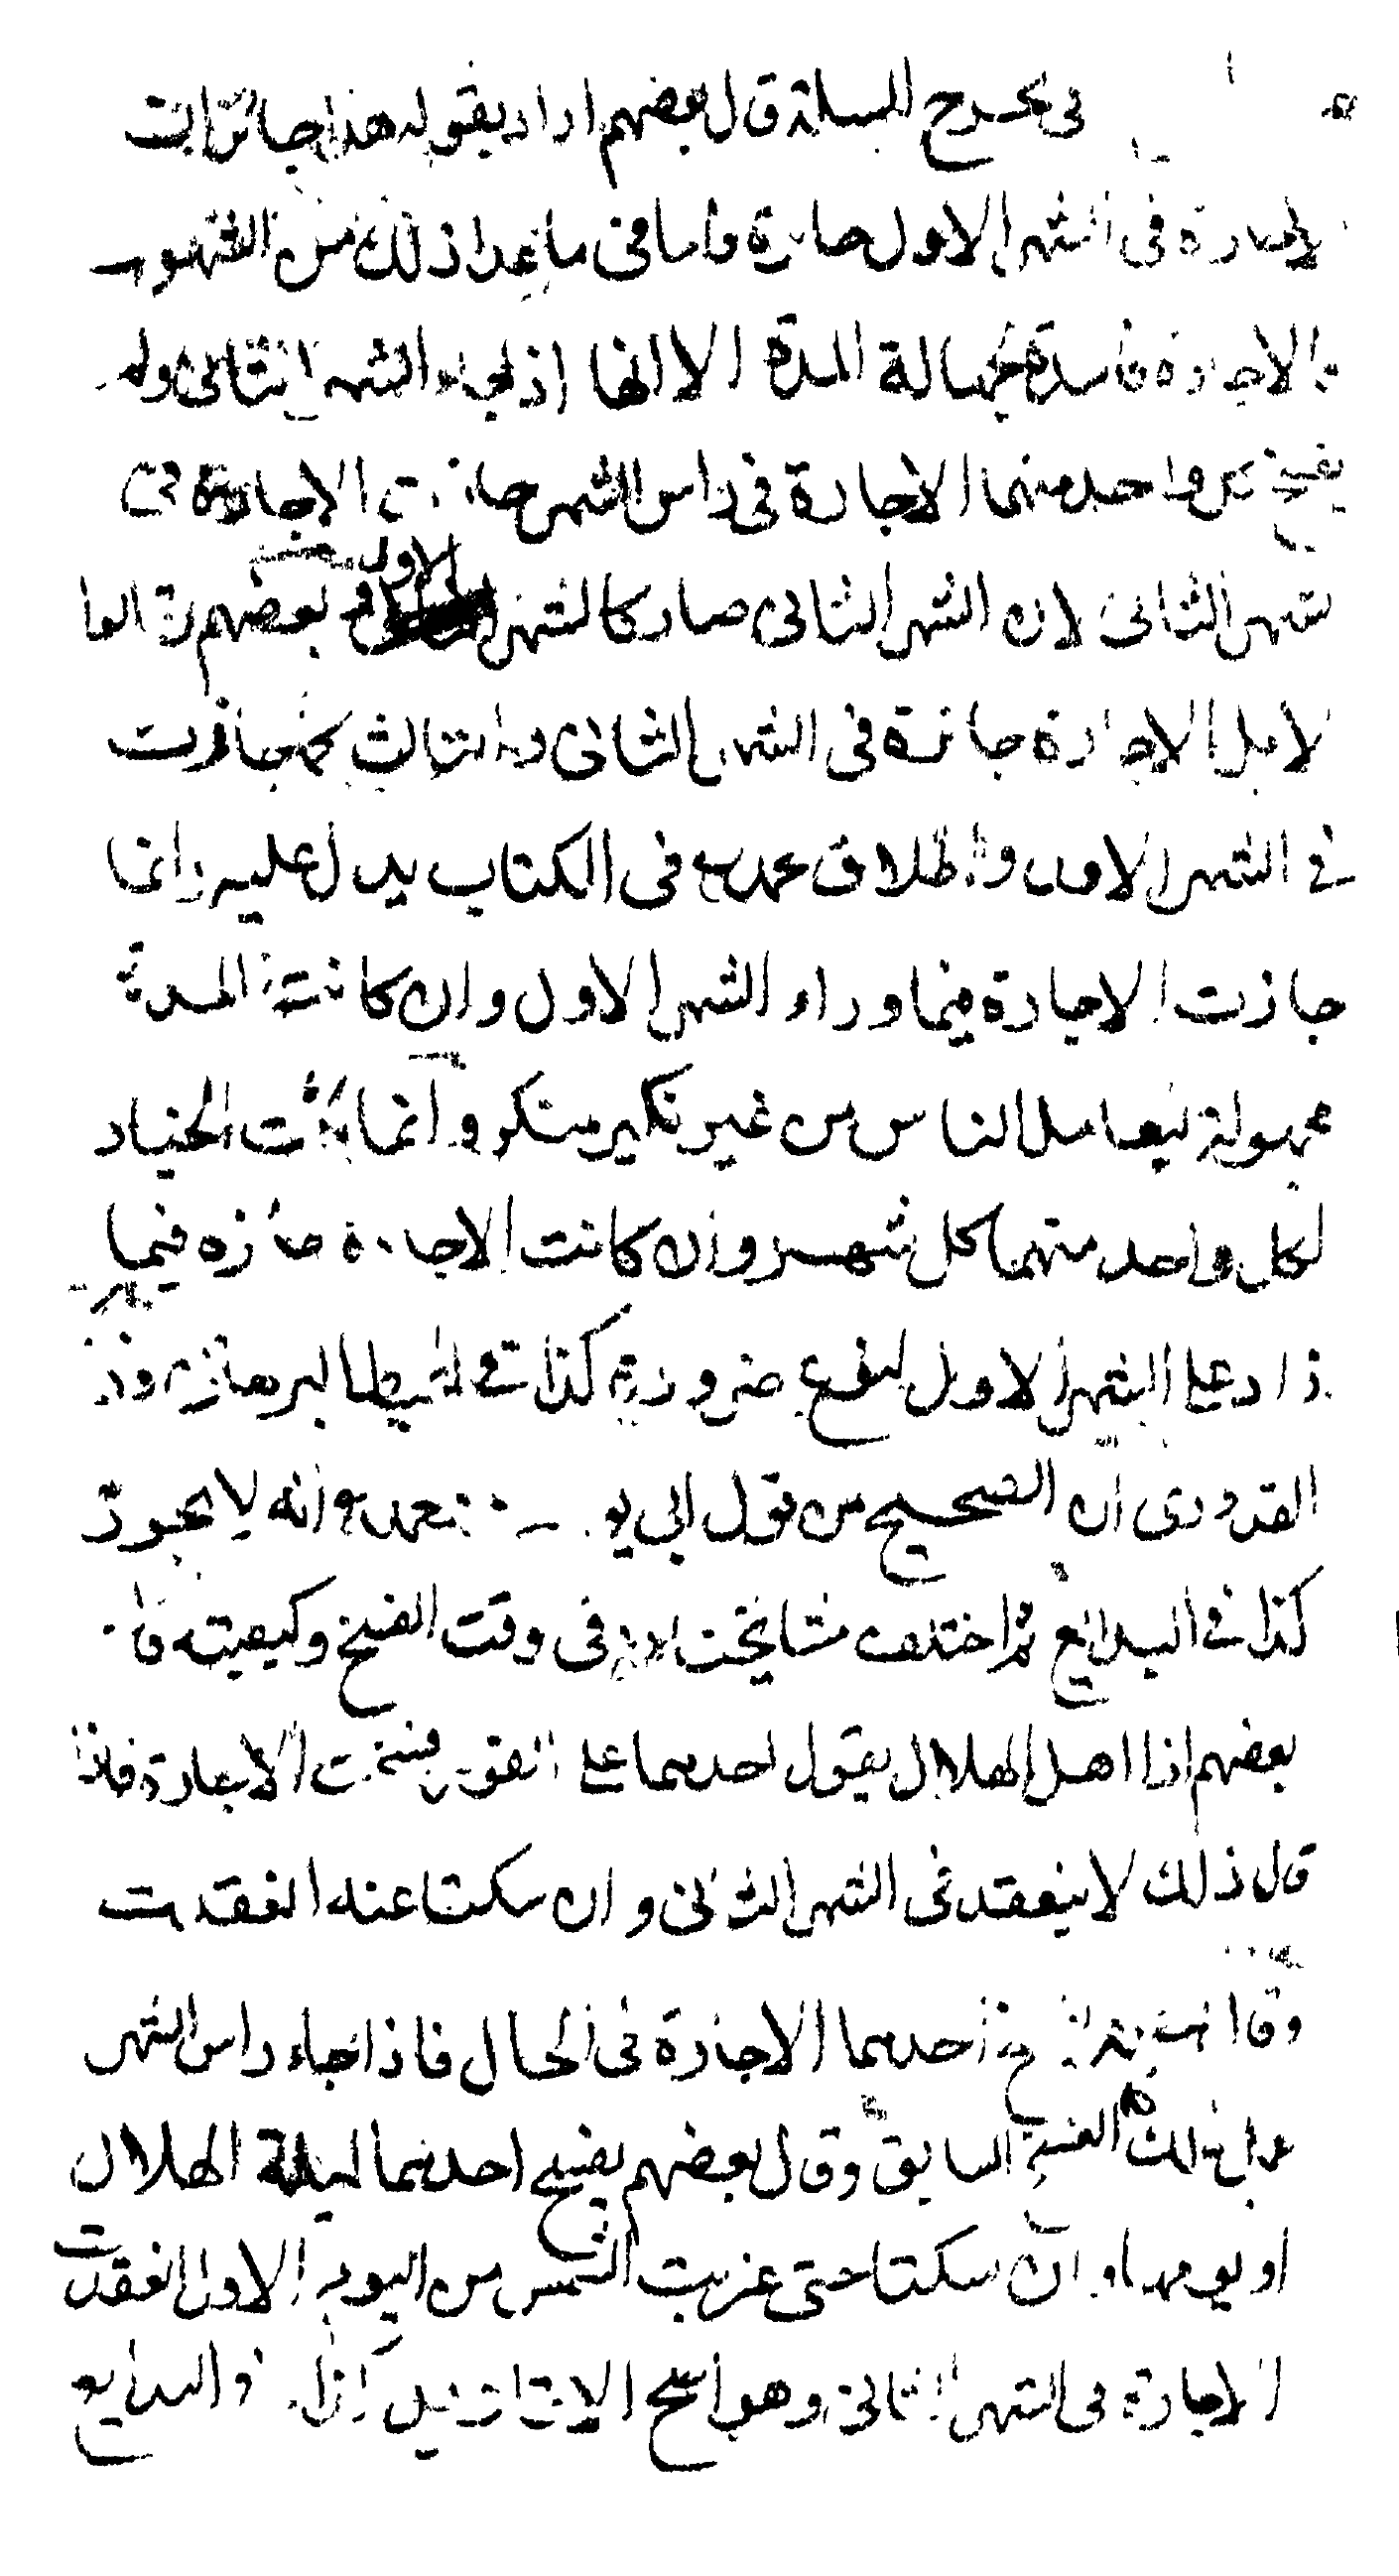 في تخريج المسلة قال بعضهم اراد بقوله هذا جائز ان
الاجارة في الشهر الاول جايزة واما في ما عدا ذلك من الشهور
فالاجارة فاسدة لجهالة المدة الا انها اذا جاء الشهر الثاني ولم
يفسخ كل واحد منهما الاجارة في راس الشهر جازت الاجارة في
الشهر الثاني لان الشهر الثاني صار كالشهر الاول وبعضهم قالوا
لا بل الاجارة جائزة في الشهر الثاني والثالث كما جازت
في الشهر الاول واطلاق محمد في الكتاب يدل عليه وانما
جازت الاجارة فيما وراء الشهر الاول وان كانت المدة
مجهولة لتعامل الناس من غير نكير منكر وانما يثبت الخيار
لكل واحد منهما كل شهر وان كانت الاجارة جائزه فيما
زاد على الشهر الاول لنوع ضرورة كذا في المحيط البرهاني وذكر
القدوري ان الصحيح من قول ابي يوسف ومحمد انه لا يجوز
كذا في البدايع ثم اختلف مشايخنا في وقت الفسخ وكيفيته قال
بعضهم اذا اهل الهلال يقول احدهما على الفور فسخت الاجارة فاذا
قال ذلك لا ينعقد في الشهر الثاني وان سكتا عنه انعقدت
وقال بعضهم يفسخ احدهما الاجارة في الحال فاذا جاء راس الشهر
عمل ذلك الفسخ السابق وقال بعضهم يفسخ احدهما ليلة الهلال
او يومها وان سكتا حتى غربت الشمس من اليوم الاول انعقدت
الاجارة في الشهر الثاني وهو اصح الاقاويل كذا في البدايع